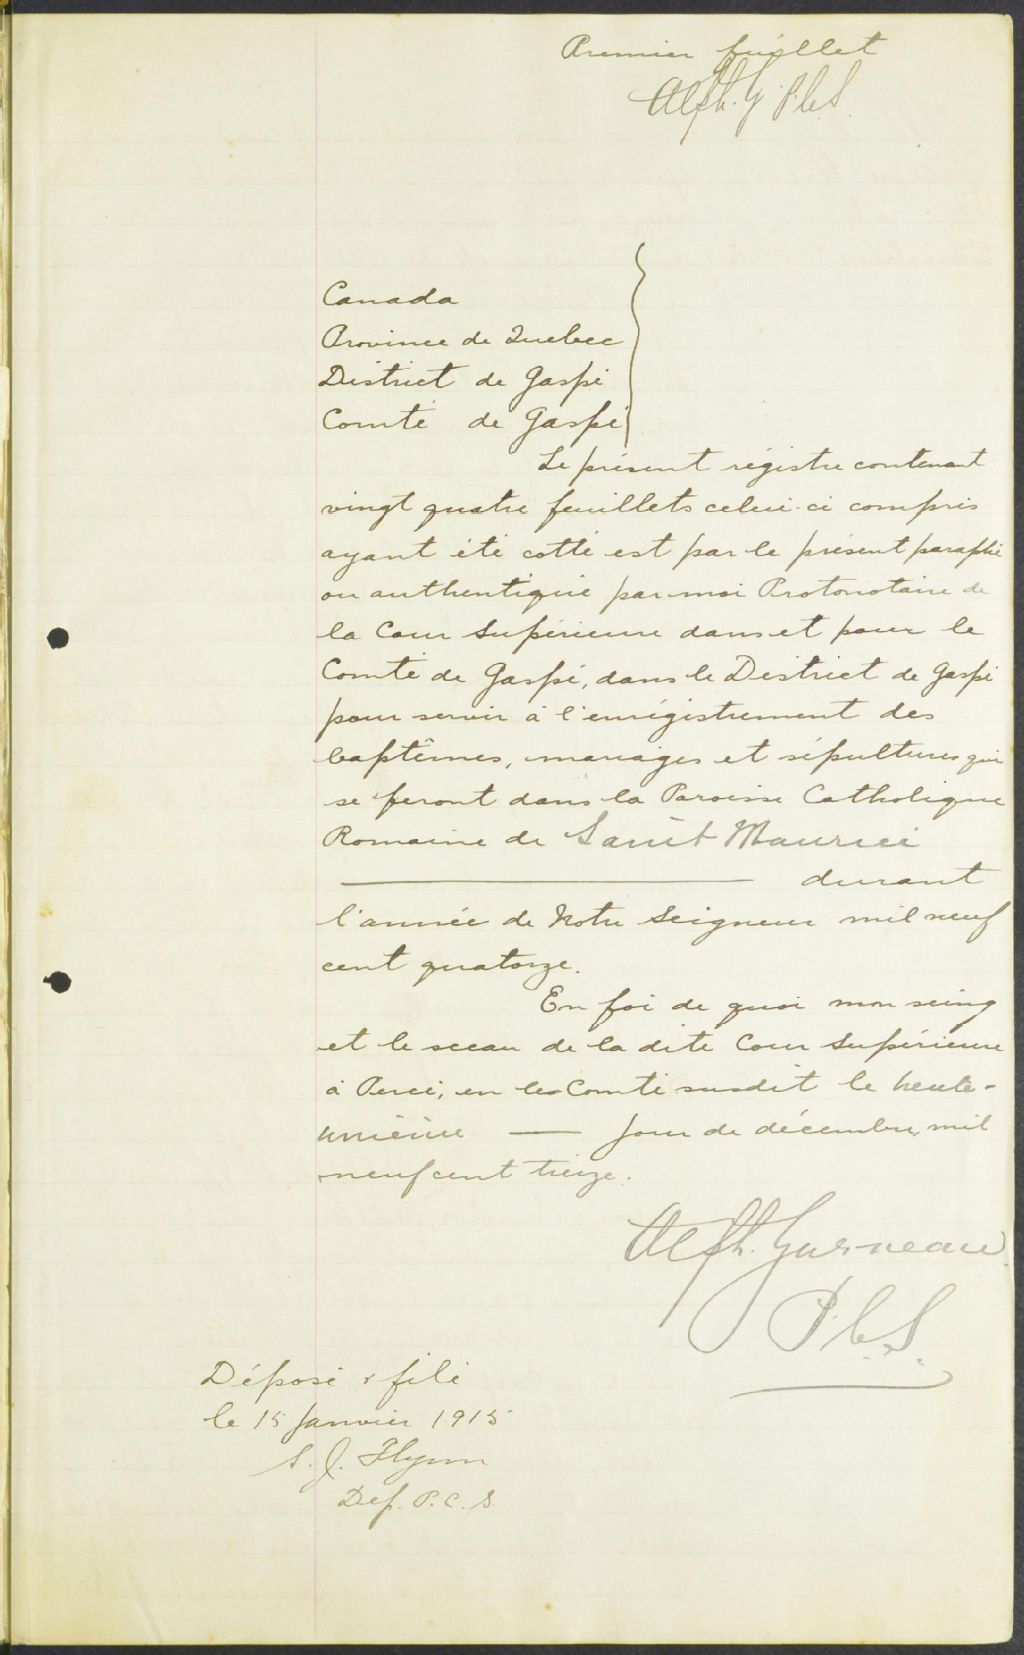 Premier feuillet
Alph. G. P.C.S.
Canada
Province de Quebec
District de Gaspé
Comté de Gaspé
Le présent régistre contenant
vingt quatre feuillets celui-ci compris
ayant été cotté est par le présent paraphé
ou authentiqué par moi Protonotaire de
la Cour Supérieure dans et pour le
Comté de Gaspé, dans le District de Gaspé
pour servir à l'enrégistrement des
baptêmes, mariages et sépultures qui
se feront dans la Paroisse Catholique
Romaine de Saint Maurice
durant
l'année de Notre Seigneur mil neuf
cent quatorze.
En foi de quoi mon seing
et le sceau de la dite Cour Supérieure
à Percé, en les Comté susdit le trente-
unième — jour de décembre, mil
neuf cent treize.
Alph. Garneau
P.C.S.
Déposé & filé
le 15 Janvier 1915
S. J. Flynn
Dep. P.C.S.